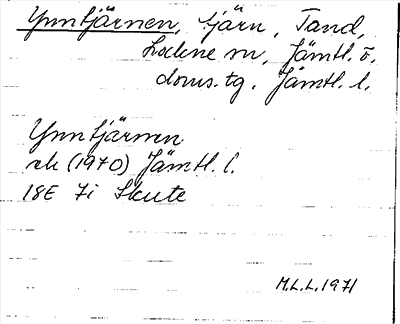 Ynntjärnen, tjärn, Tand,
Lockne sn, Jämtl. ö.
doms. tg. Jämtl. l.
Ynntjärnen
ek (1970) Jämtl. l.
18E 7i Skute
M.L.L. 1971